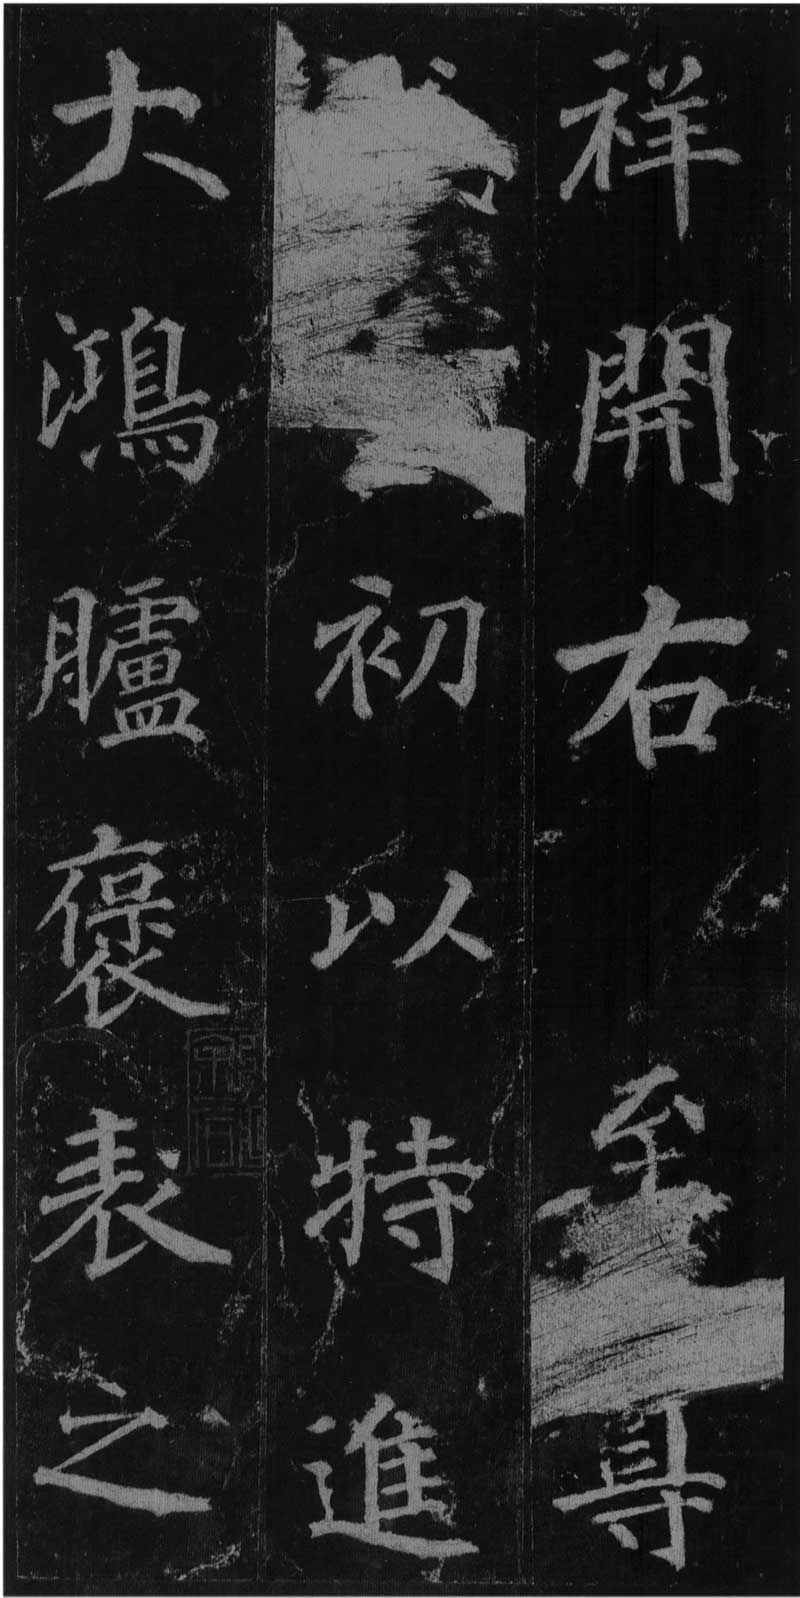 祥開右至
初以特進
大鴻臚褒表之